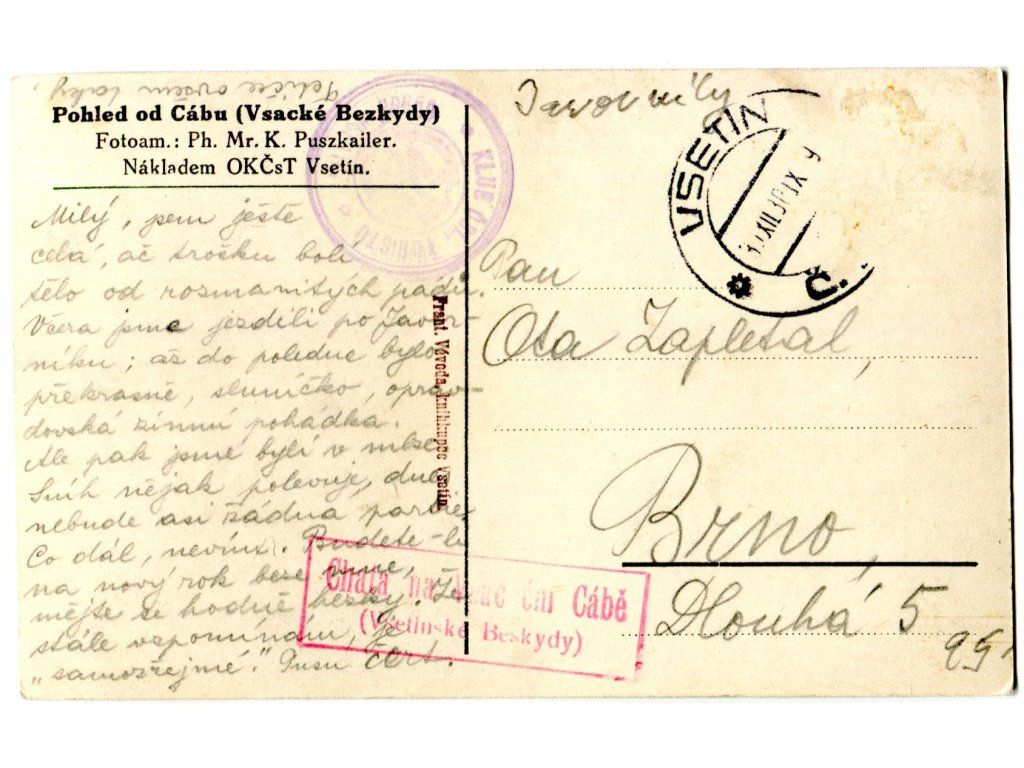 Pohled od Cábu (Vsacké Bezkydy)
Fotoam.: Ph. Mr. K. Puszkailer.
Nákladem OKČsT Vsetín.
Milý, jsem ještě
celá, ač trošku bolí
tělo od rozmanitých pádů.
Včera jsme jezdili po Javor-
níku; až do poledne bylo
překrasně, sluníčko, oprav-
dovská zimní pohádka.
Ale pak jsme byli v mlze
Sníh nějak polevuje, dnes
nebude asi žádná
Co dál, nevím. Budete-li
na nový rok beze mne,
mějte se hodně hezky. Že
stále vzpomínám, je
"samozřejmé." Pusu čert.
Frant. Vávoda, knihkupec Vsetín.
KLUB ČSL. TURISTŮ
Javorníky
VSETÍN
Č.
Pan
Ota Zapletal,
Brno,
Dlouhá 5
Chata na Cábě
(Vsetínské Beskydy)